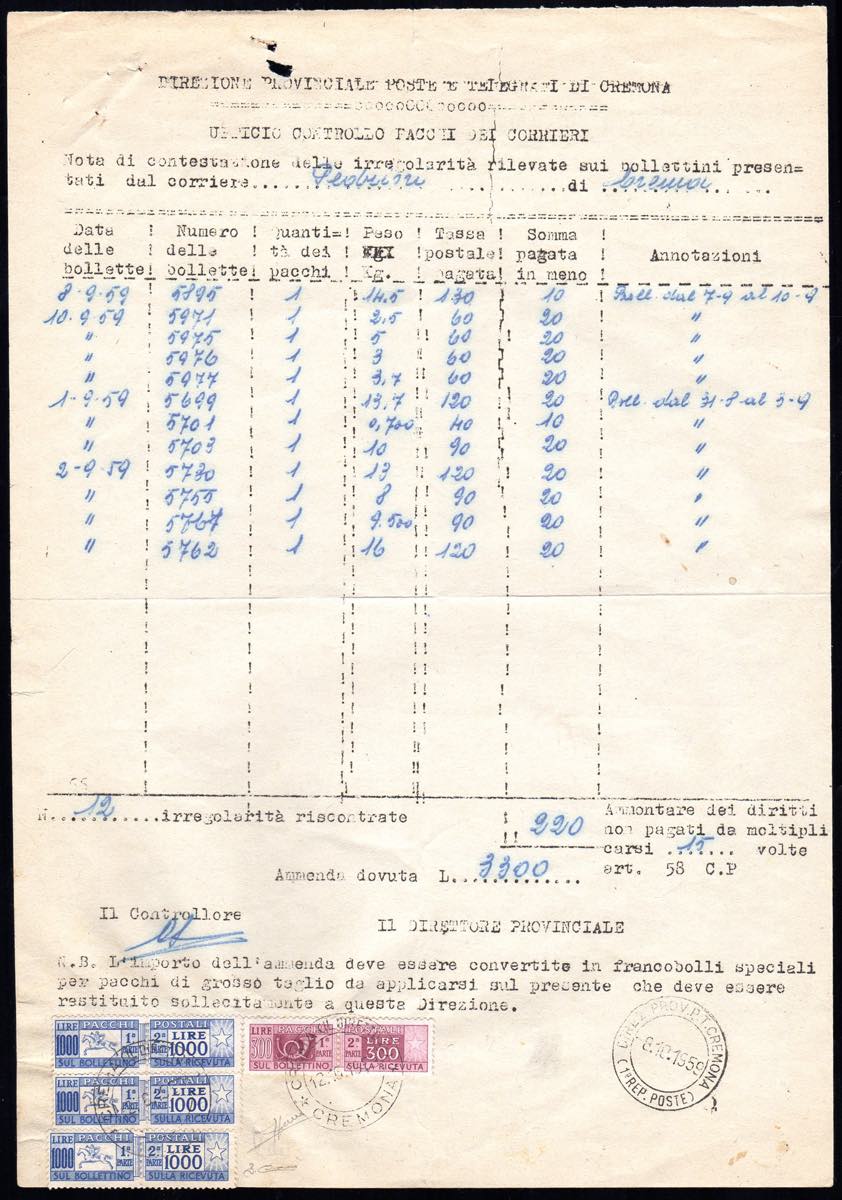 DIREZIONE PROVINCIALE POSTE E TELEGRAFI DI CREMONA
UFFICIO CONTROLLO PACCHI DEI CORRIERI
Nota di contestazione delle irregolarità rilevate sui bollettini presen=
tati dal corriere.... ........di Crema
Data delle bollette! Numero delle bollette! Quanti=tà dei pacchi ! Peso Kg. ! Tassa postale pagata ! Somma pagata in meno ! Annotazioni
8-9-59 5895 1 14.5 130 10 Boll. dal 7-9 al 10-9
10.9.59 5971 1 2,5 60 20 "
" 5975 1 5 60 20 "
" 5976 1 3 60 20 "
" 5977 1 3,7 60 20 "
1-9-59 5699 1 13,7 120 20 Boll. dal 31-8 al 3-9
" 5701 1 0,700 40 10 "
" 5703 1 10 90 20 "
2-9-59 5730 1 13 120 20 "
" 5755 1 8 90 20 "
" 5767 1 9.500 90 20 "
" 5762 1 16 120 20 "
N...12......irregolarità riscontrate !! 220 Ammontare dei diritti
non pagati da moltipli
carsi ..15... volte
Ammenda dovuta L...3300....... art. 58 C.P
Il Controllore
Il DIRETTORE PROVINCIALE
N.B. L'importo dell'ammenda deve essere convertito in francobolli speciali
per pacchi di grosso taglio da applicarsi sul presente che deve essere
restituito sollecitamente a questa Direzione.
LIRE 1000 PACCHI 1ª PARTE SUL BOLLETTINO POSTALI 2ª PARTE LIRE 1000 SULLA RICEVUTA
LIRE 1000 PACCHI 1ª PARTE SUL BOLLETTINO POSTALI 2ª LIRE 1000 SULLA RICEVUTA
LIRE 1000 PACCHI 1ª PARTE SUL BOLLETTINO POSTALI 2ª PARTE LIRE 1000 SULLA RICEVUTA
LIRE 300 PACCHI 1ª PARTE SUL BOLLETTINO POSTALI 2ª PARTE LIRE 300 SULLA RICEVUTA
CREMONA
DIREZ. PROV. P.T. CREMONA
8.10.1959
(1º REP. POSTE)